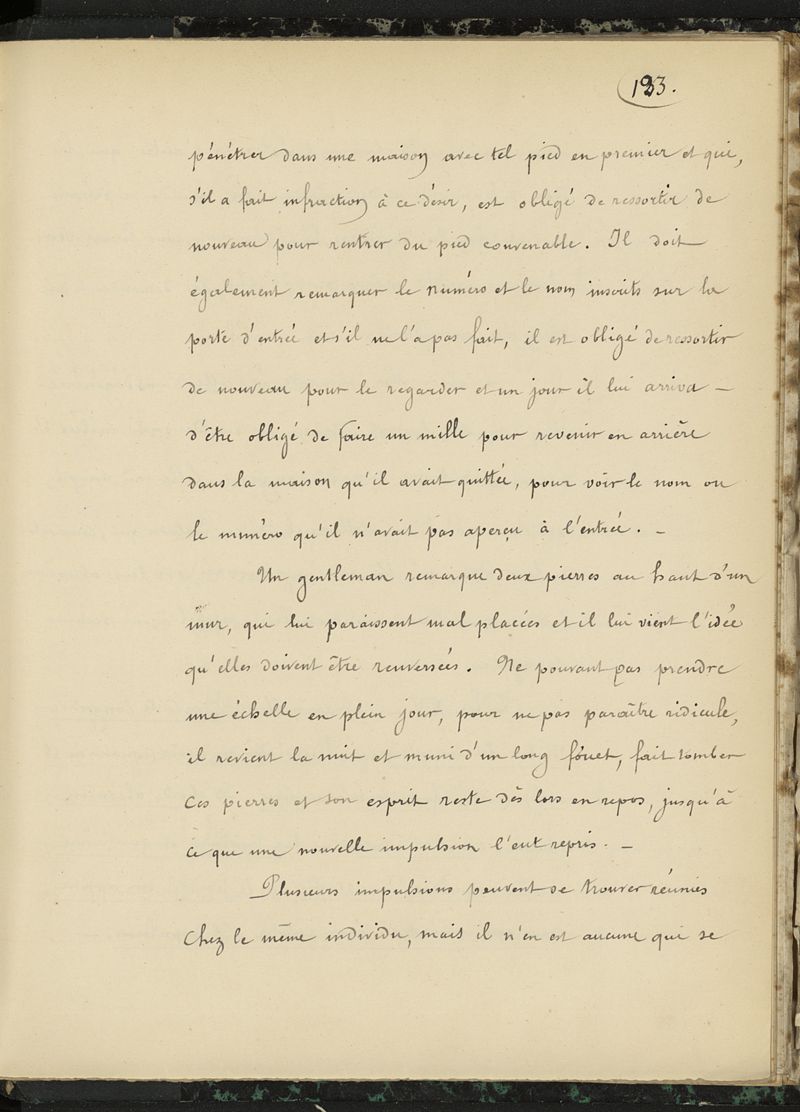 123.
pénétrer dans une maison avec tel pied en premier et qui,
s'il a fait infraction à ce désir, est obligé de ressortir de
nouveau pour rentrer du pied convenable. Il doit
également remarquer le numéro et le nom inscrits sur la
porte d'entrée et s'il ne l'a pas fait, il est obligé de ressortir
de nouveau pour le regarder et un jour il lui arriva –
d'être obligé de faire un mille pour revenir en arrière
dans la maison qu'il avait quittée, pour voir le nom ou
le numéro qu'il n'avait pas aperçu à l'entrée. –
Un gentleman remarque deux pierres au haut d'un
mur, qui lui paraissent mal placées et il lui vient l'idée
qu'elles doivent être renversées. Ne pouvant pas prendre
une échelle en plein jour, pour ne pas paraître ridicule,
il revient la nuit et muni d'un long fouet, fait tomber
ces pierres et son esprit reste dès lors en repos, jusqu'à
ce que une nouvelle impulsion l'eut repris. –
Plusieurs impulsions peuvent se trouver réunies
chez le même individu, mais il n'en est aucune qui se